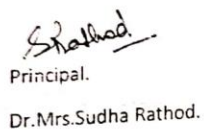 SRathod
Principal.
Dr.Mrs.Sudha Rathod.